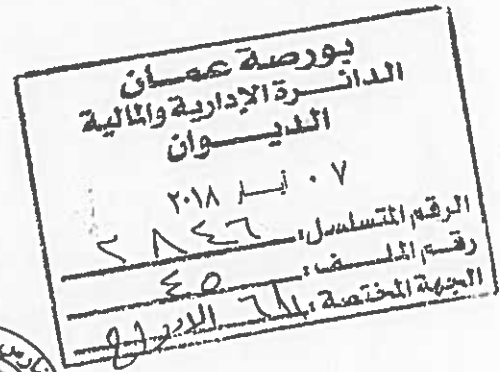 بورصة عمان
الدائرة الإدارية والمالية
الديوان
٠٧ أيار ٢٠١٨
الرقم المتسلسل: ٢٨٤٦
رقم الملف: ٤٥
الجهة المختصة: